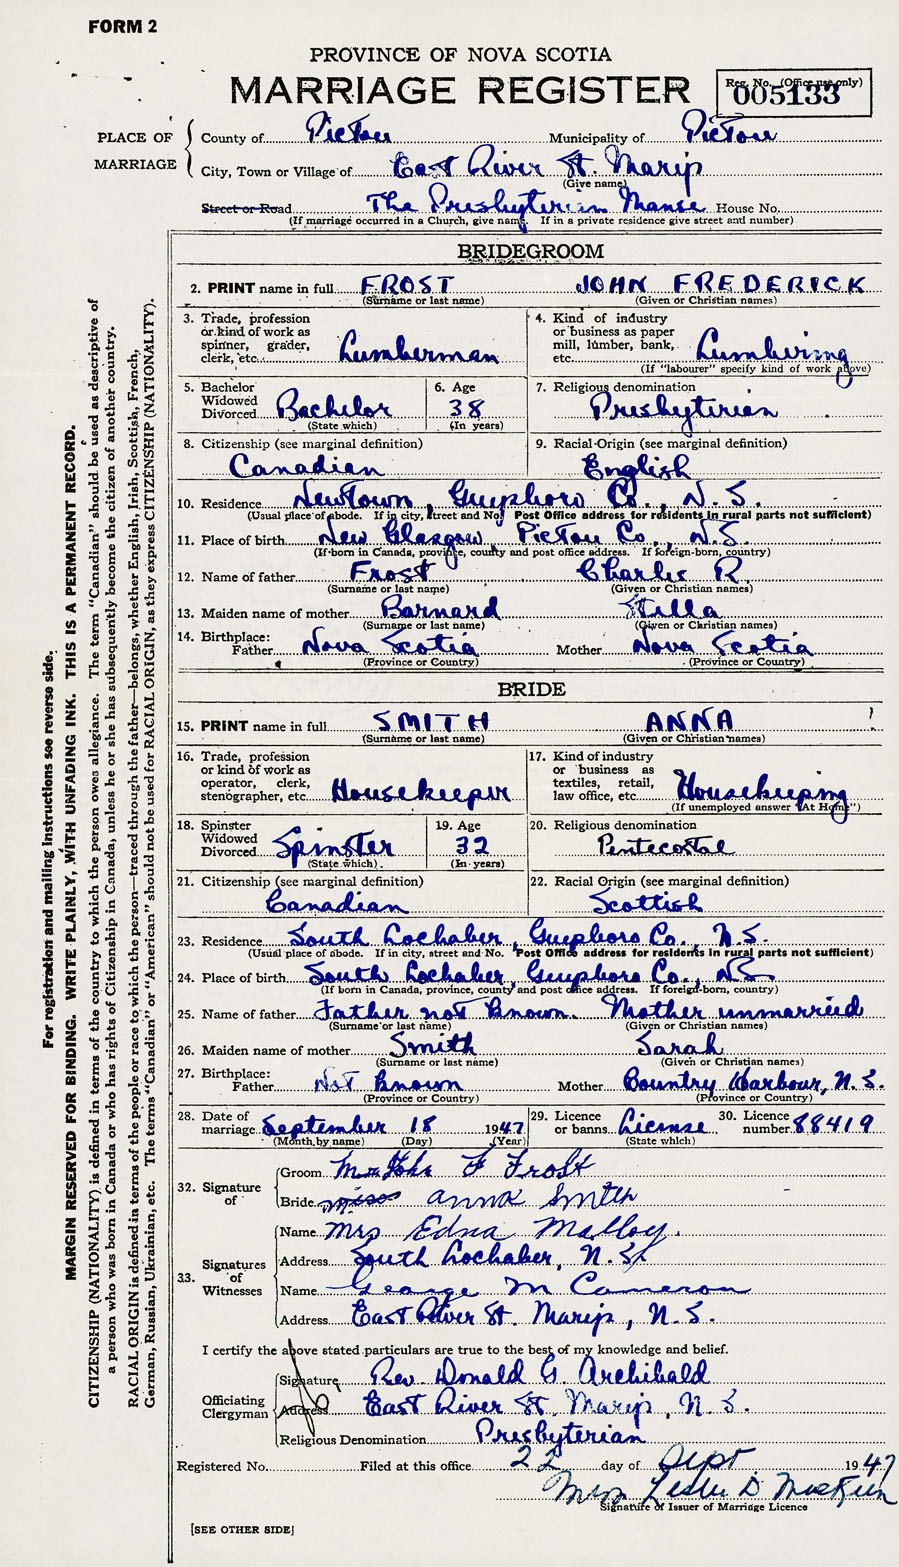 FORM 2
PROVINCE OF NOVA SCOTIA
MARRIAGE REGISTER
Reg. No. (Office use only)
005133
PLACE OF MARRIAGE
County of Pictou Municipality of Pictou
City, Town or Village of East River St. Marys
(Give name)
Street or Road The Presbyterian Manse House No.
(If marriage occurred in a Church, give name. If in a private residence give street and number)
BRIDEGROOM
2. PRINT name in full FROST JOHN FREDERICK
(Surname or last name) (Given or Christian names)
3. Trade, profession or kind of work as spinner, grader, clerk, etc. Lumberman
4. Kind of industry or business as paper mill, lumber, bank, etc. Lumbering
(If "labourer" specify kind of work above)
5. Bachelor Widowed Divorced Bachelor
(State which)
6. Age 38
(In years)
7. Religious denomination
Presbyterian
8. Citizenship (see marginal definition)
Canadian
9. Racial Origin (see marginal definition)
English
10. Residence Newtown, Guysboro Co., N.S.
(Usual place of abode. If in city, street and No. Post Office address for residents in rural parts not sufficient)
11. Place of birth New Glasgow, Pictou Co., N.S.
(If born in Canada, province, county and post office address. If foreign-born, country)
12. Name of father Frost Charlie R.
(Surname or last name) (Given or Christian names)
13. Maiden name of mother Barnard Stella
(Surname or last name) (Given or Christian names)
14. Birthplace:
Father Nova Scotia Mother Nova Scotia
(Province or Country) (Province or Country)
BRIDE
15. PRINT name in full SMITH ANNA
(Surname or last name) (Given or Christian names)
16. Trade, profession or kind of work as operator, clerk, stenographer, etc. Housekeeper
17. Kind of industry or business as textiles, retail, law office, etc. Housekeeping
(If unemployed answer "At Home")
18. Spinster Widowed Divorced Spinster
(State which)
19. Age 32
(In years)
20. Religious denomination
Pentecostal
21. Citizenship (see marginal definition)
Canadian
22. Racial Origin (see marginal definition)
Scottish
23. Residence South Lochaber, Guysboro Co., N.S.
(Usual place of abode. If in city, street and No. Post Office address for residents in rural parts not sufficient)
24. Place of birth South Lochaber, Guysboro Co., N.S.
(If born in Canada, province, county and post office address. If foreign-born, country)
25. Name of father Father not known. Mother unmarried
(Surname or last name) (Given or Christian names)
26. Maiden name of mother Smith Sarah
(Surname or last name) (Given or Christian names)
27. Birthplace:
Father Not known Mother Country Harbour, N.S.
(Province or Country) (Province or Country)
28. Date of marriage September 18 1947
(Month by name) (Day) (Year)
29. Licence or banns License
(State which)
30. Licence number 88419
32. Signature of
Groom Mr John F Frost
Bride Miss Anna Smith
33. Signatures of Witnesses
Name Mrs Edna Malloy.
Address South Lochaber, N.S.
Name George M Cameron
Address East River St. Marys, N.S.
I certify the above stated particulars are true to the best of my knowledge and belief.
Officiating Clergyman
Signature Rev. Donald G. Archibald
Address East River St. Marys, N.S.
Religious Denomination Presbyterian
Registered No. Filed at this office 22 day of Sept 1947
Mrs Leslie D
Signature of Issuer of Marriage Licence
[SEE OTHER SIDE]
For registration and mailing instructions see reverse side.
MARGIN RESERVED FOR BINDING. WRITE PLAINLY, WITH UNFADING INK. THIS IS A PERMANENT RECORD.
CITIZENSHIP (NATIONALITY) is defined in terms of the country to which the person owes allegiance. The term "Canadian" should be used as descriptive of
a person who was born in Canada or who has rights of Citizenship in Canada, unless he or she has subsequently become the citizen of another country.
RACIAL ORIGIN is defined in terms of the people or race to which the person—traced through the father—belongs, whether English, Irish, Scottish, French,
German, Russian, Ukrainian, etc. The terms "Canadian" or "American" should not be used for RACIAL ORIGIN, as they express CITIZENSHIP (NATIONALITY).